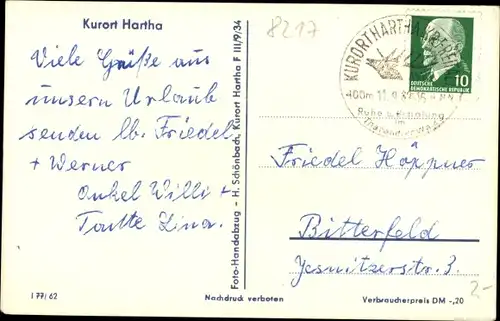 Kurort Hartha
8217
Viele Grüße aus
unserm Urlaub
senden lb. Friedel
+ Werner
Onkel Willi +
Tante Lina.
I 77/62
Foto-Handabzug - H. Schönbach, Kurort Hartha F III/9/34
Nachdruck verboten
KURORT HARTHA
400m
Ruhe u. Erholung
im
Tharandter Wald
DEUTSCHE
DEMOKRATISCHE REPUBLIK
10
Friedel Höppner
Bitterfeld
Jesnitzerstr. 3.
2-
Verbraucherpreis DM -,20